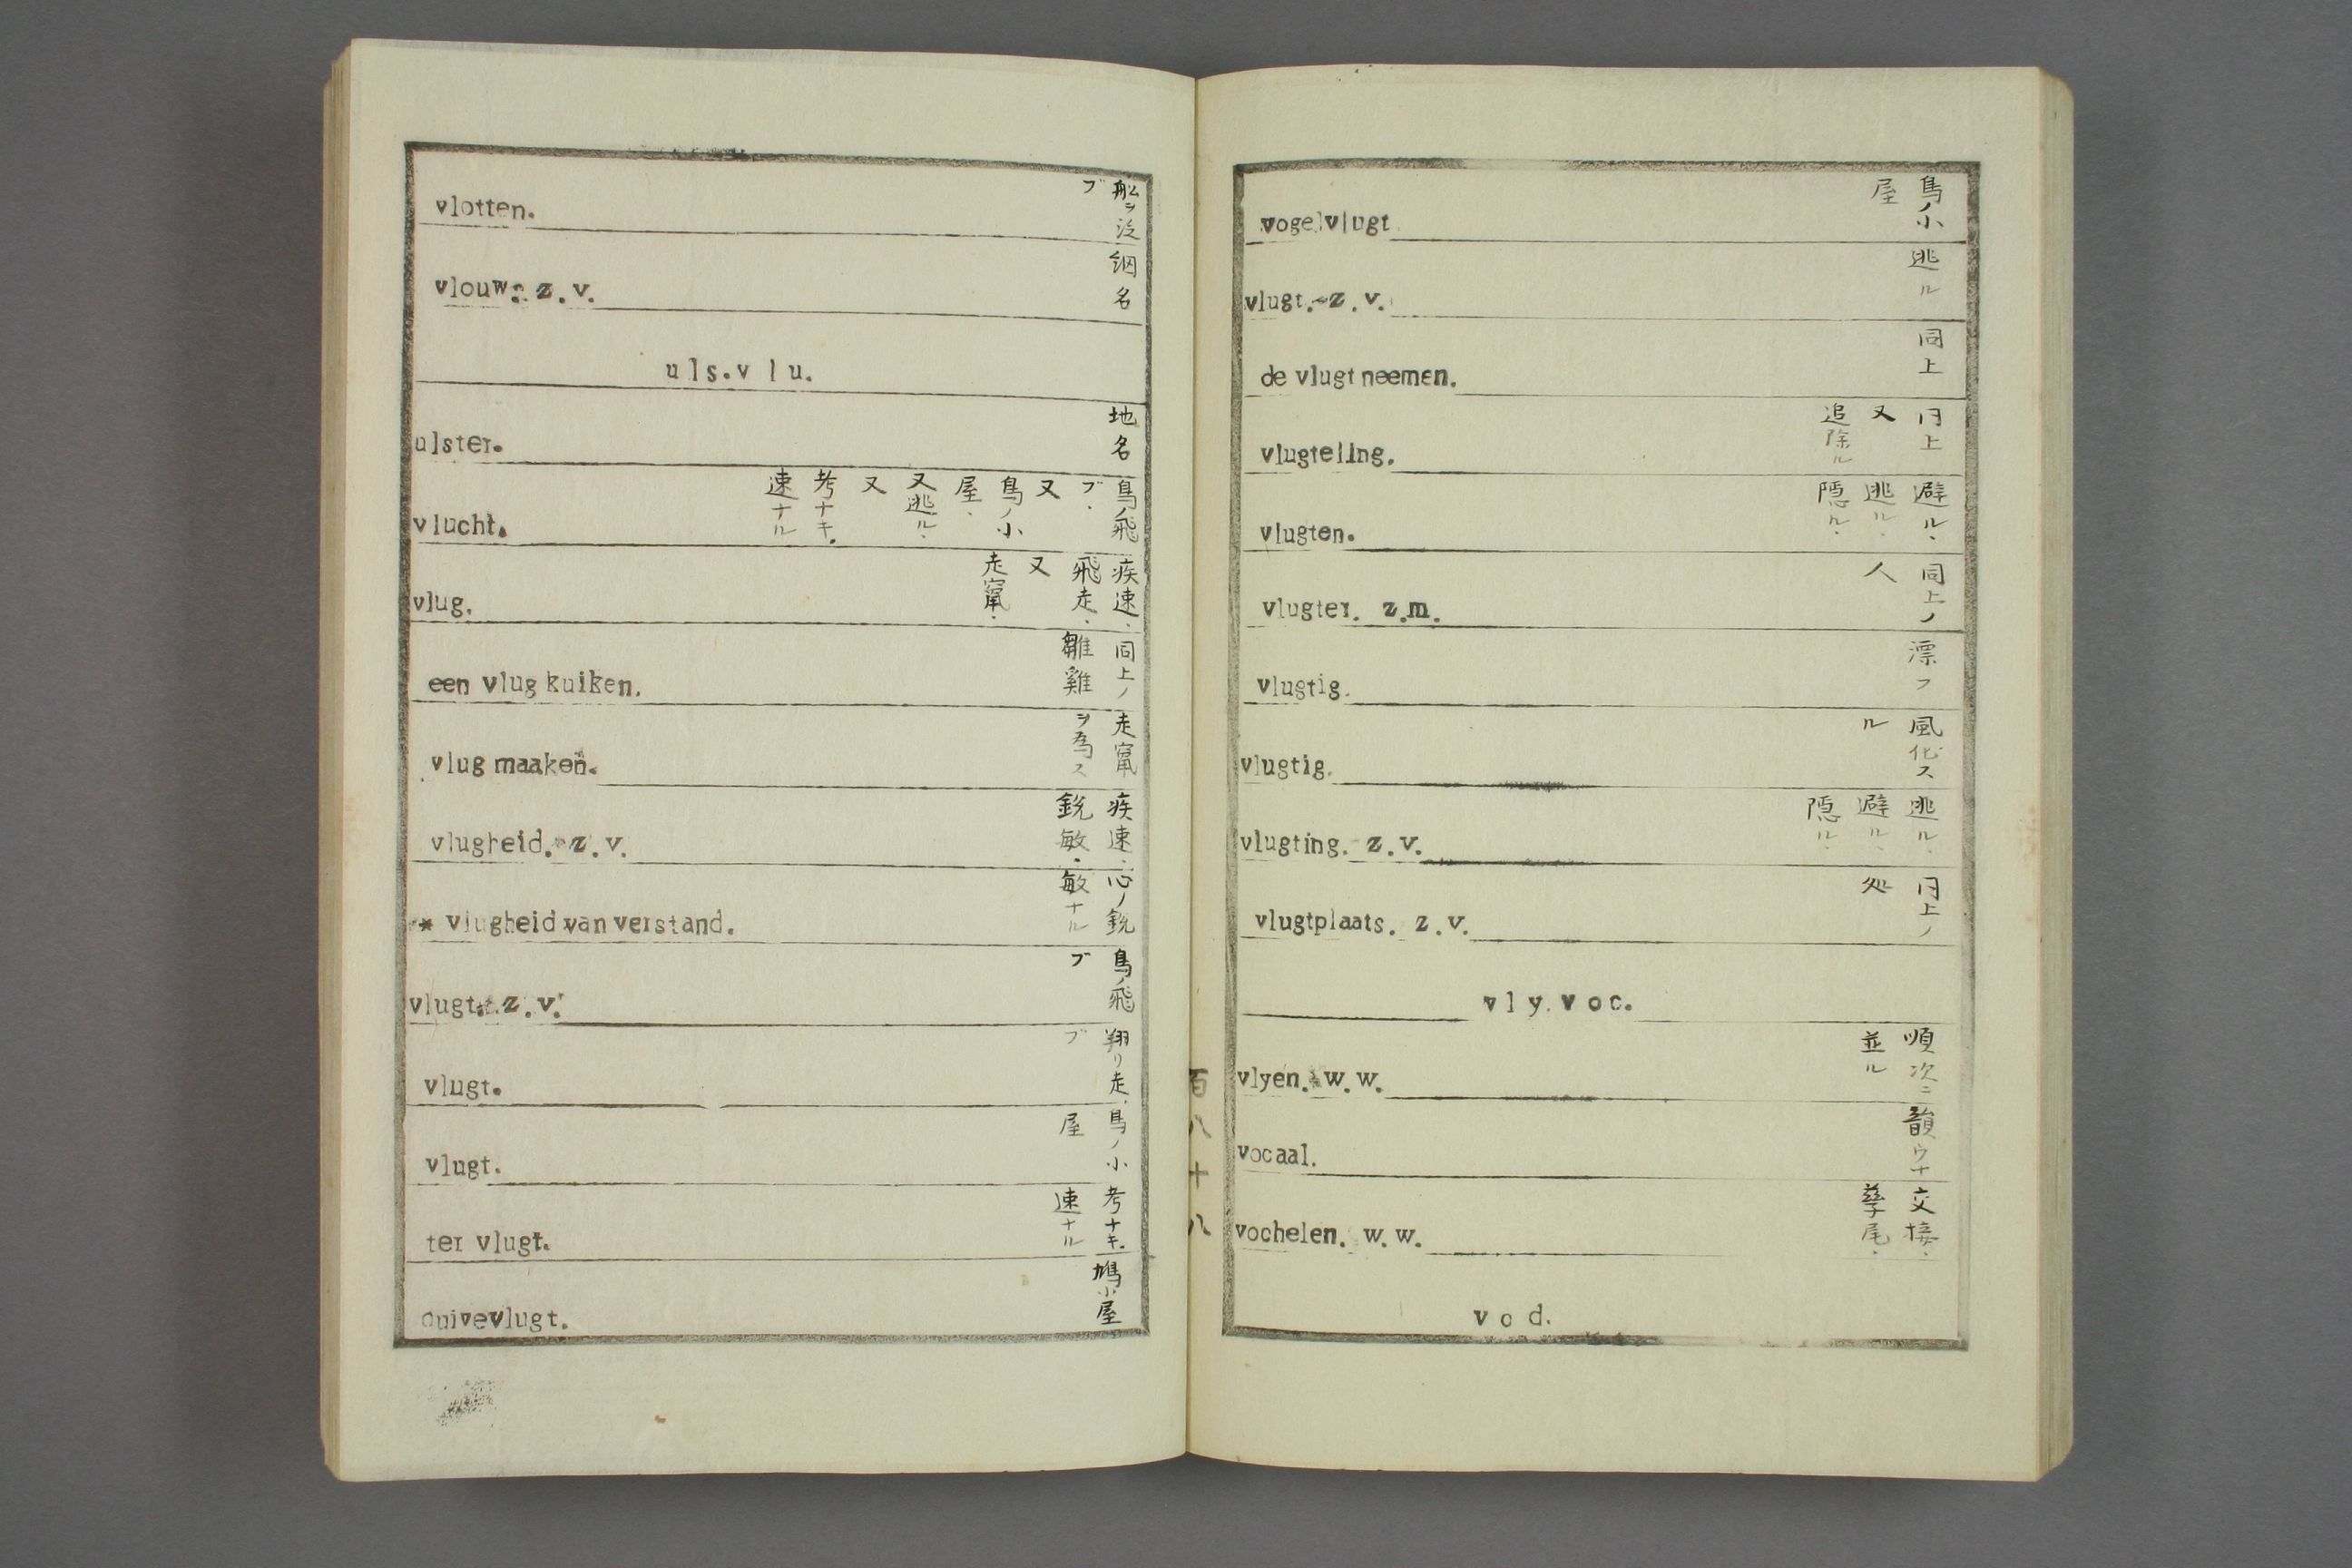 vlotten. 舩ヲ泛ブ
vlouw. z.v. 網名
uls.vlu.
ulster. 地名
vlucht. 鳥ノ飛ブ. 又鳥ノ小屋. 又逃ル. 又考ナキ. 速ナル
vlug. 疾速. 飛走. 又走竄.
een vlug kuiken. 同上ノ雛雞
vlug maaken. 走竄ヲ為ス
vlugheid. z.v. 疾速. 鋭敏.
* vlugheid van verstand. 心ノ鋭敏ナル
vlugt. z.v. 鳥ノ飛ブ
vlugt. 翔リ走ブ
vlugt. 鳥ノ小屋
ter vlugt. 考ナキ. 速ナル
duivevlugt. 鳩小屋
百八十八
vogelvlugt 鳥ノ小屋
vlugt. z.v. 逃ル
de vlugt neemen. 同上
vlugteling. 同上又追除ル
vlugten. 避ル. 逃ル. 隠ル.
vlugter. z.m. 同上ノ人
vlugtig. 漂フ
vlugtig. 風化スル
vlugting. z.v. 逃ル. 避ル. 隠ル.
vlugtplaats. z.v. 同上ノ処
vly.voc.
vlyen. w.w. 順次ニ並ル
vocaal. 韻
vochelen. w.w. 交接. 孳尾.
vod.